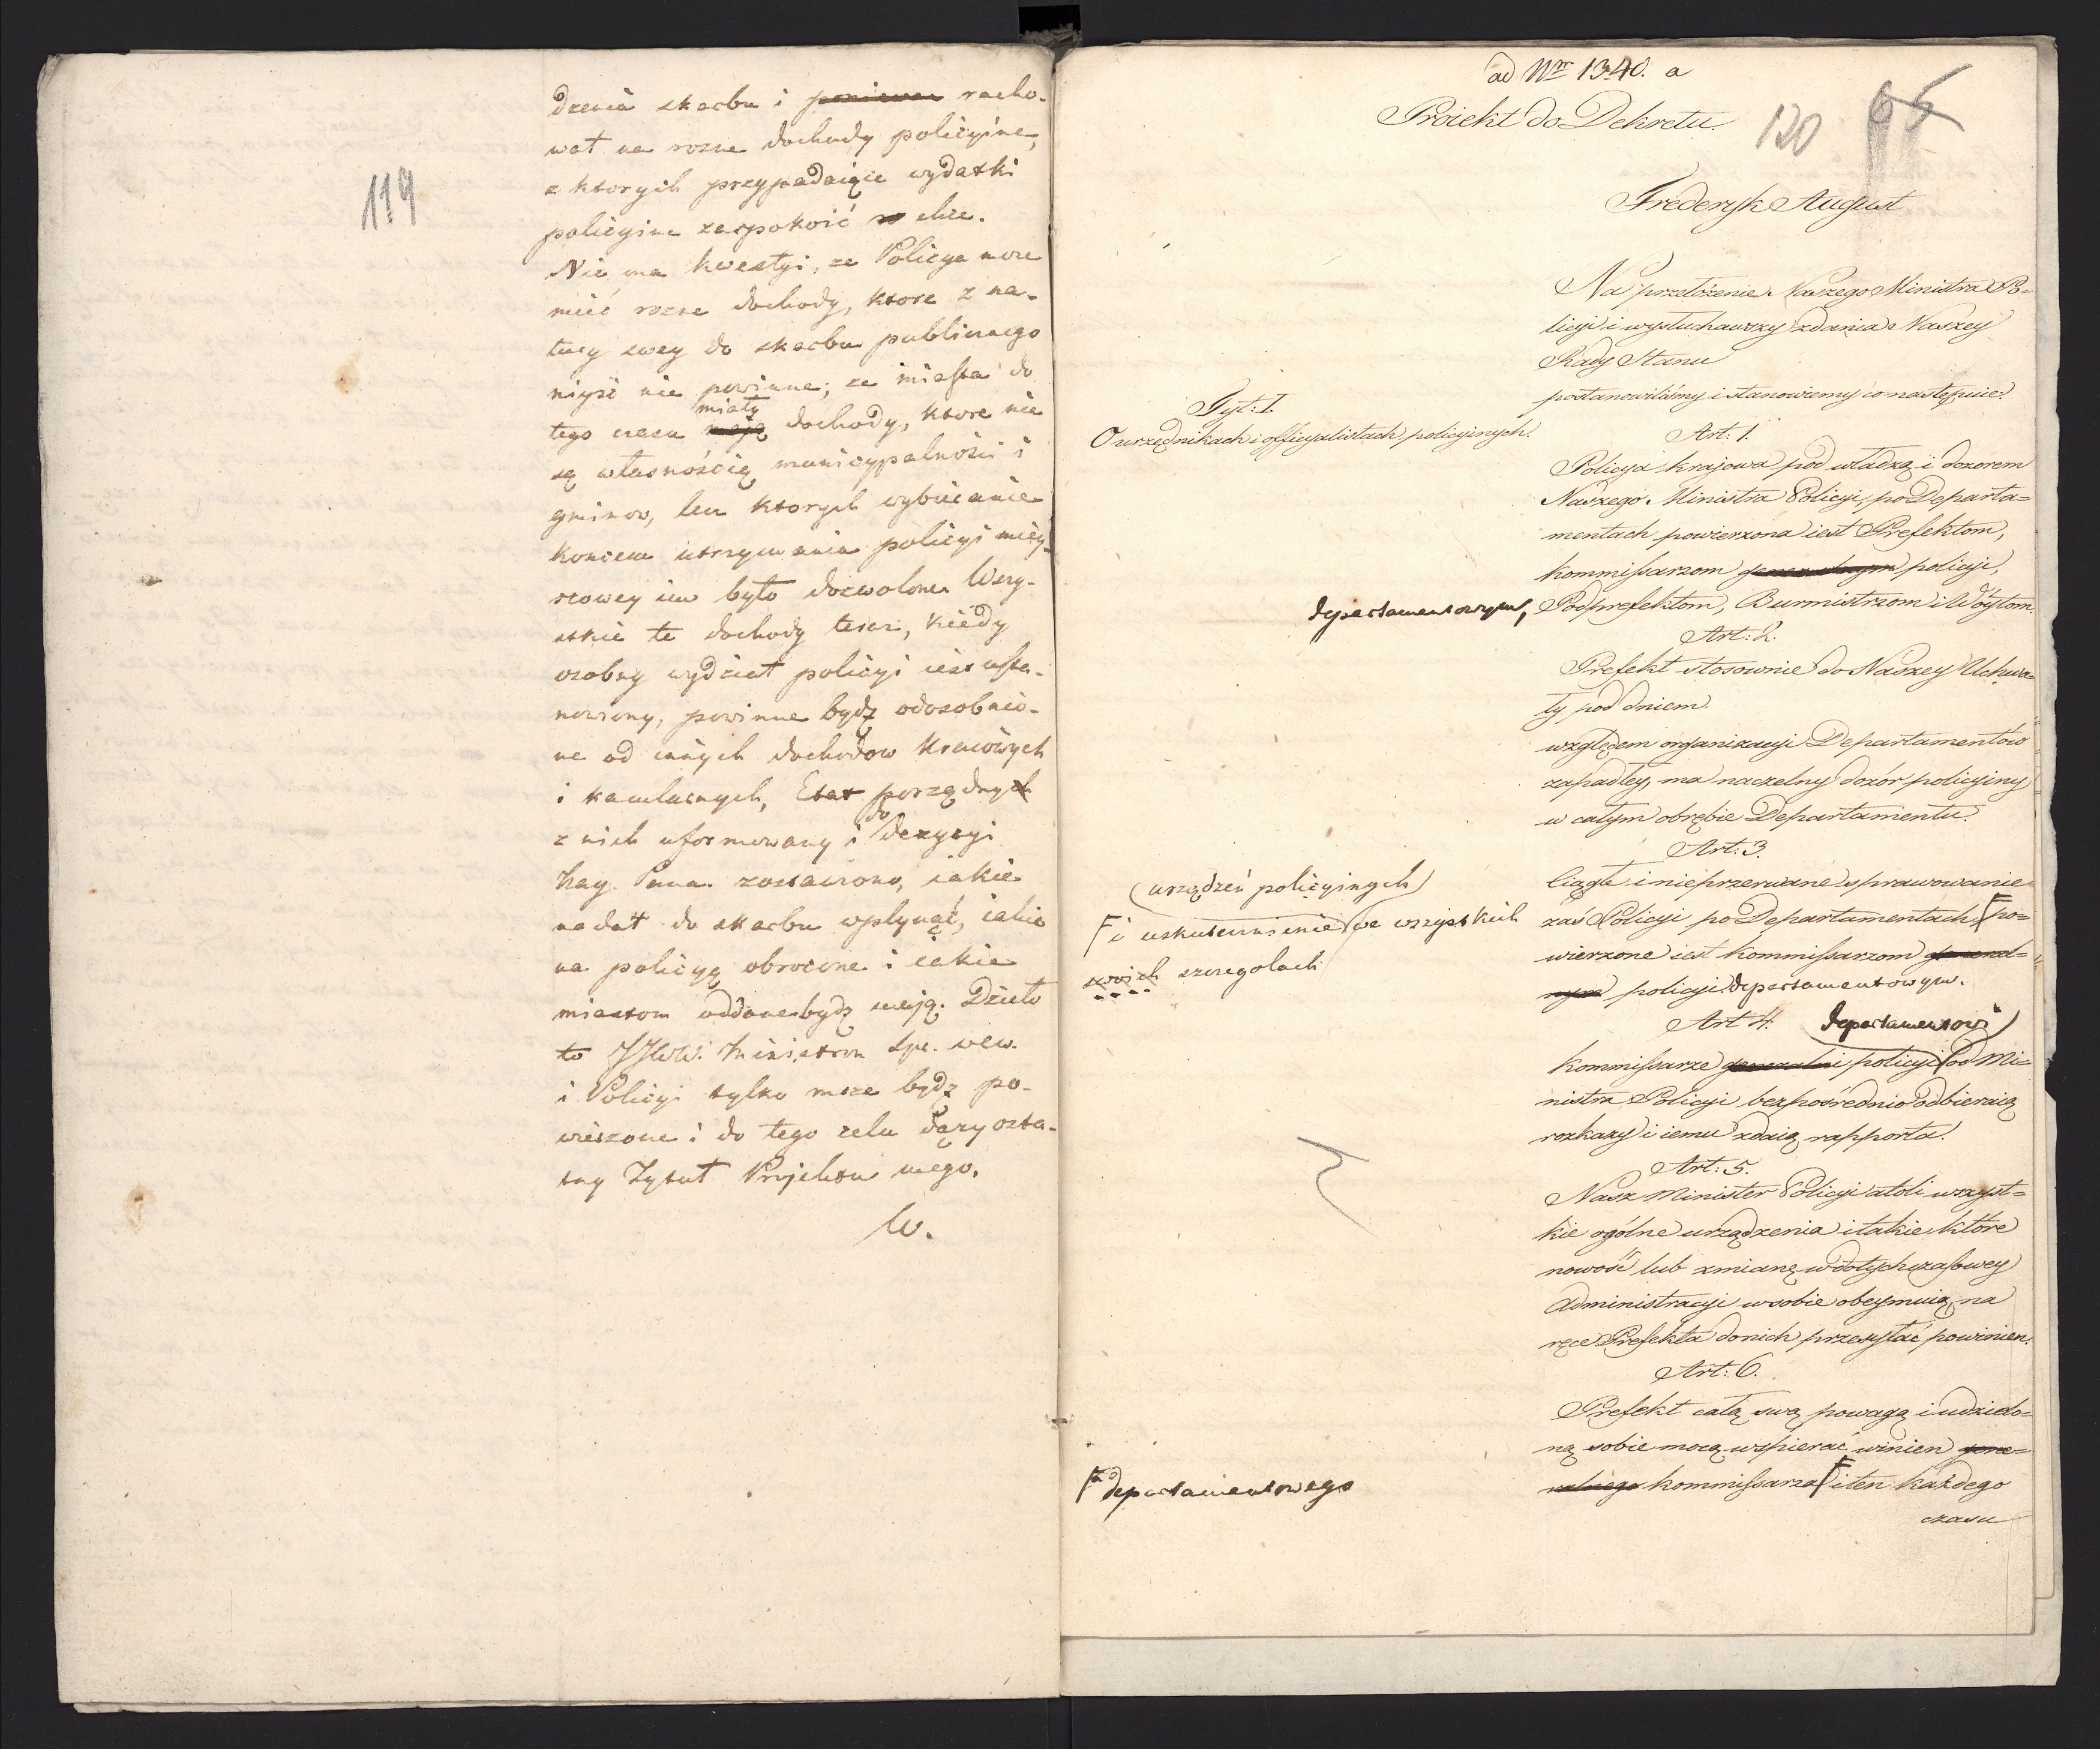 119
dzenia skarbu i racho-
wał na rozne dochody policyine,
z ktorych przypadaiące wydatki
policyine zaspokoić chce.
Nie ma kwestyi, ze Policya moze
mieć rozne dochody, ktore z na-
tury swey do skarbu publicznego
niyść nie powinne; ze miasta do
tego czasu miały dochody, ktore nie
są własnością municypalności i
gminow, lecz ktorych wybieranie
koncem utrzymania policyi miey-
scowey im było dozwolone. Wszy-
stkie te dochody teraz, kiedy
osobny wydział policyi iest usta-
nowiony, powinne bydz odosobnio-
ne od innych dochodow kraiowych
i kameralnych, Etat porządny
z nich uformowany i do decyzyi
Nay. Pana zostawiono, iakie
nadal do skarbu wplynąć, iakie
na policyą obrocone i iakie
miastom oddane bydz maią. Dzieło
to JJWW. Ministrom Spr. wew.
i Policyi tylko moze bydz po-
wierzone i do tego celu dązy osta-
tny Tytuł Projektu mego.
W.
ad Nr 1340. a
Proiekt do Dekretu.
120 65
Frederyk August
Na przełożenie Naszego Ministra Po-
licyi i wysłuchawszy zdania Naszey
Rady Stanu
postanowiliśmy i stanowiemy co następuie:
Tyt: I.
O urzędnikach i officyalistach policyinych.
Art: 1.
Policya krajowa pod władzą i dozorem
Naszego Ministra Policyi, po Departa=
mentach powierzona iest Prefektom,
kommissarzom generalnym policyi,
departamentowym, Podprefektom, Burmistrzom i Wóytom.
Art: 2.
Prefekt stosownie do Naszey Uchwa=
ły pod dniem
względem organizacyi Departamentów
zapadłey, ma naczelny dozór policyiny
w całym obrębie Departamentu.
Art: 3.
Ciągłe i nieprzerwane sprawowanie
(urządzeń policyinych)
F i uskutecznienie we wszystkich
swoich szczegolach
zaś Policyi po Departamentach F po=
wierzone iest kommissarzom general=
nym policyi departamentowym.
Art 4. departamentowi
Kommissarze generalni policyi od Mi=
nistra Policyi bezpośrednio odbieraią
rozkazy i iemu zdaią rapporta.
Art: 5.
Nasz Minister Policyi atoli wszyst=
kie ogólne urządzenia i takie które
nowość lub zmianę w dotychczasowey
Administracyi w sobie obeymuią, na
ręce Prefekta do nich przesyłać powinien.
Art: 6.
Prefekt całą swą powagą i udzielo=
ną sobie mocą wspierać winien gene=
ralnego kommissarza F i ten każdego
F departamentowego
czasu